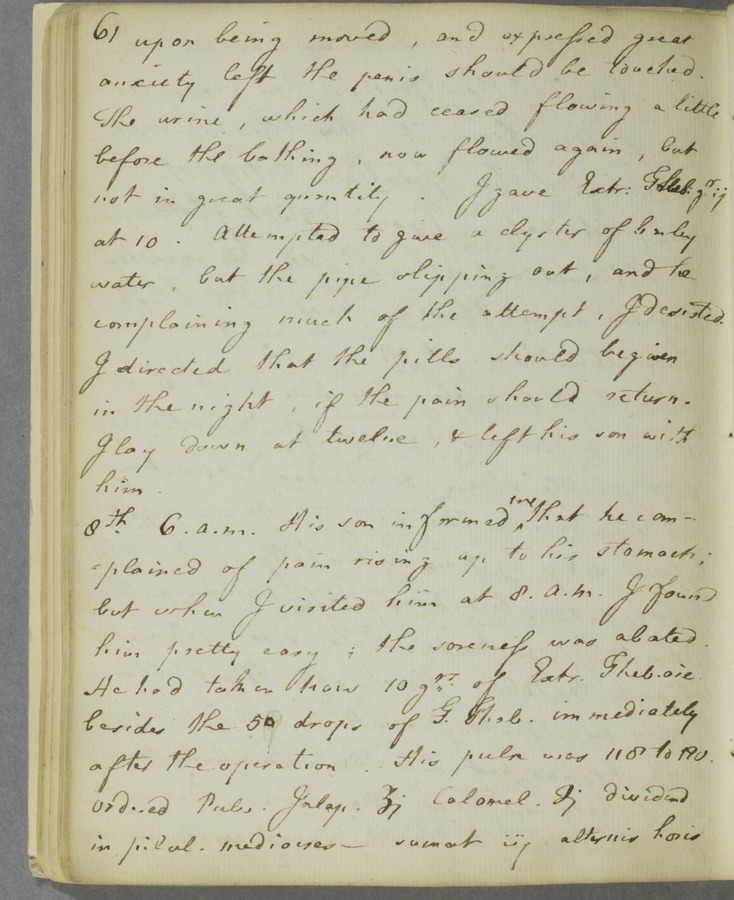 61 upon being moved, and expressed great
anxiety lest the penis should be touched.
The urine, which had ceased flowing a little
before the bathing, now flowed again, but
not in great quantity. I gave Extr: Theb. gr. ij
at 10. Attempted to give a clyster of barley
water, but the pipe slipping out, and he
complaining much of the attempt, I desisted.
I directed that the pills should be given
in the night, if the pain should return.
I lay down at twelve, & left his son with
him.
8th. 6. a.m. His son informed me that he com-
-plained of pain rising up to his stomach;
but when I visited him at 8. a.m. I found
him pretty easy; the soreness was abated.
He had taken 10 grs. of Extr. Thebaic.
besides the 50 drops of T. Theb. immediately
after the operation. His pulse was 118 to
ordered Pulv. Jalap. ʒj Calomel. ℈j divided
in pilul. mediocres — sumat iij alternis horis